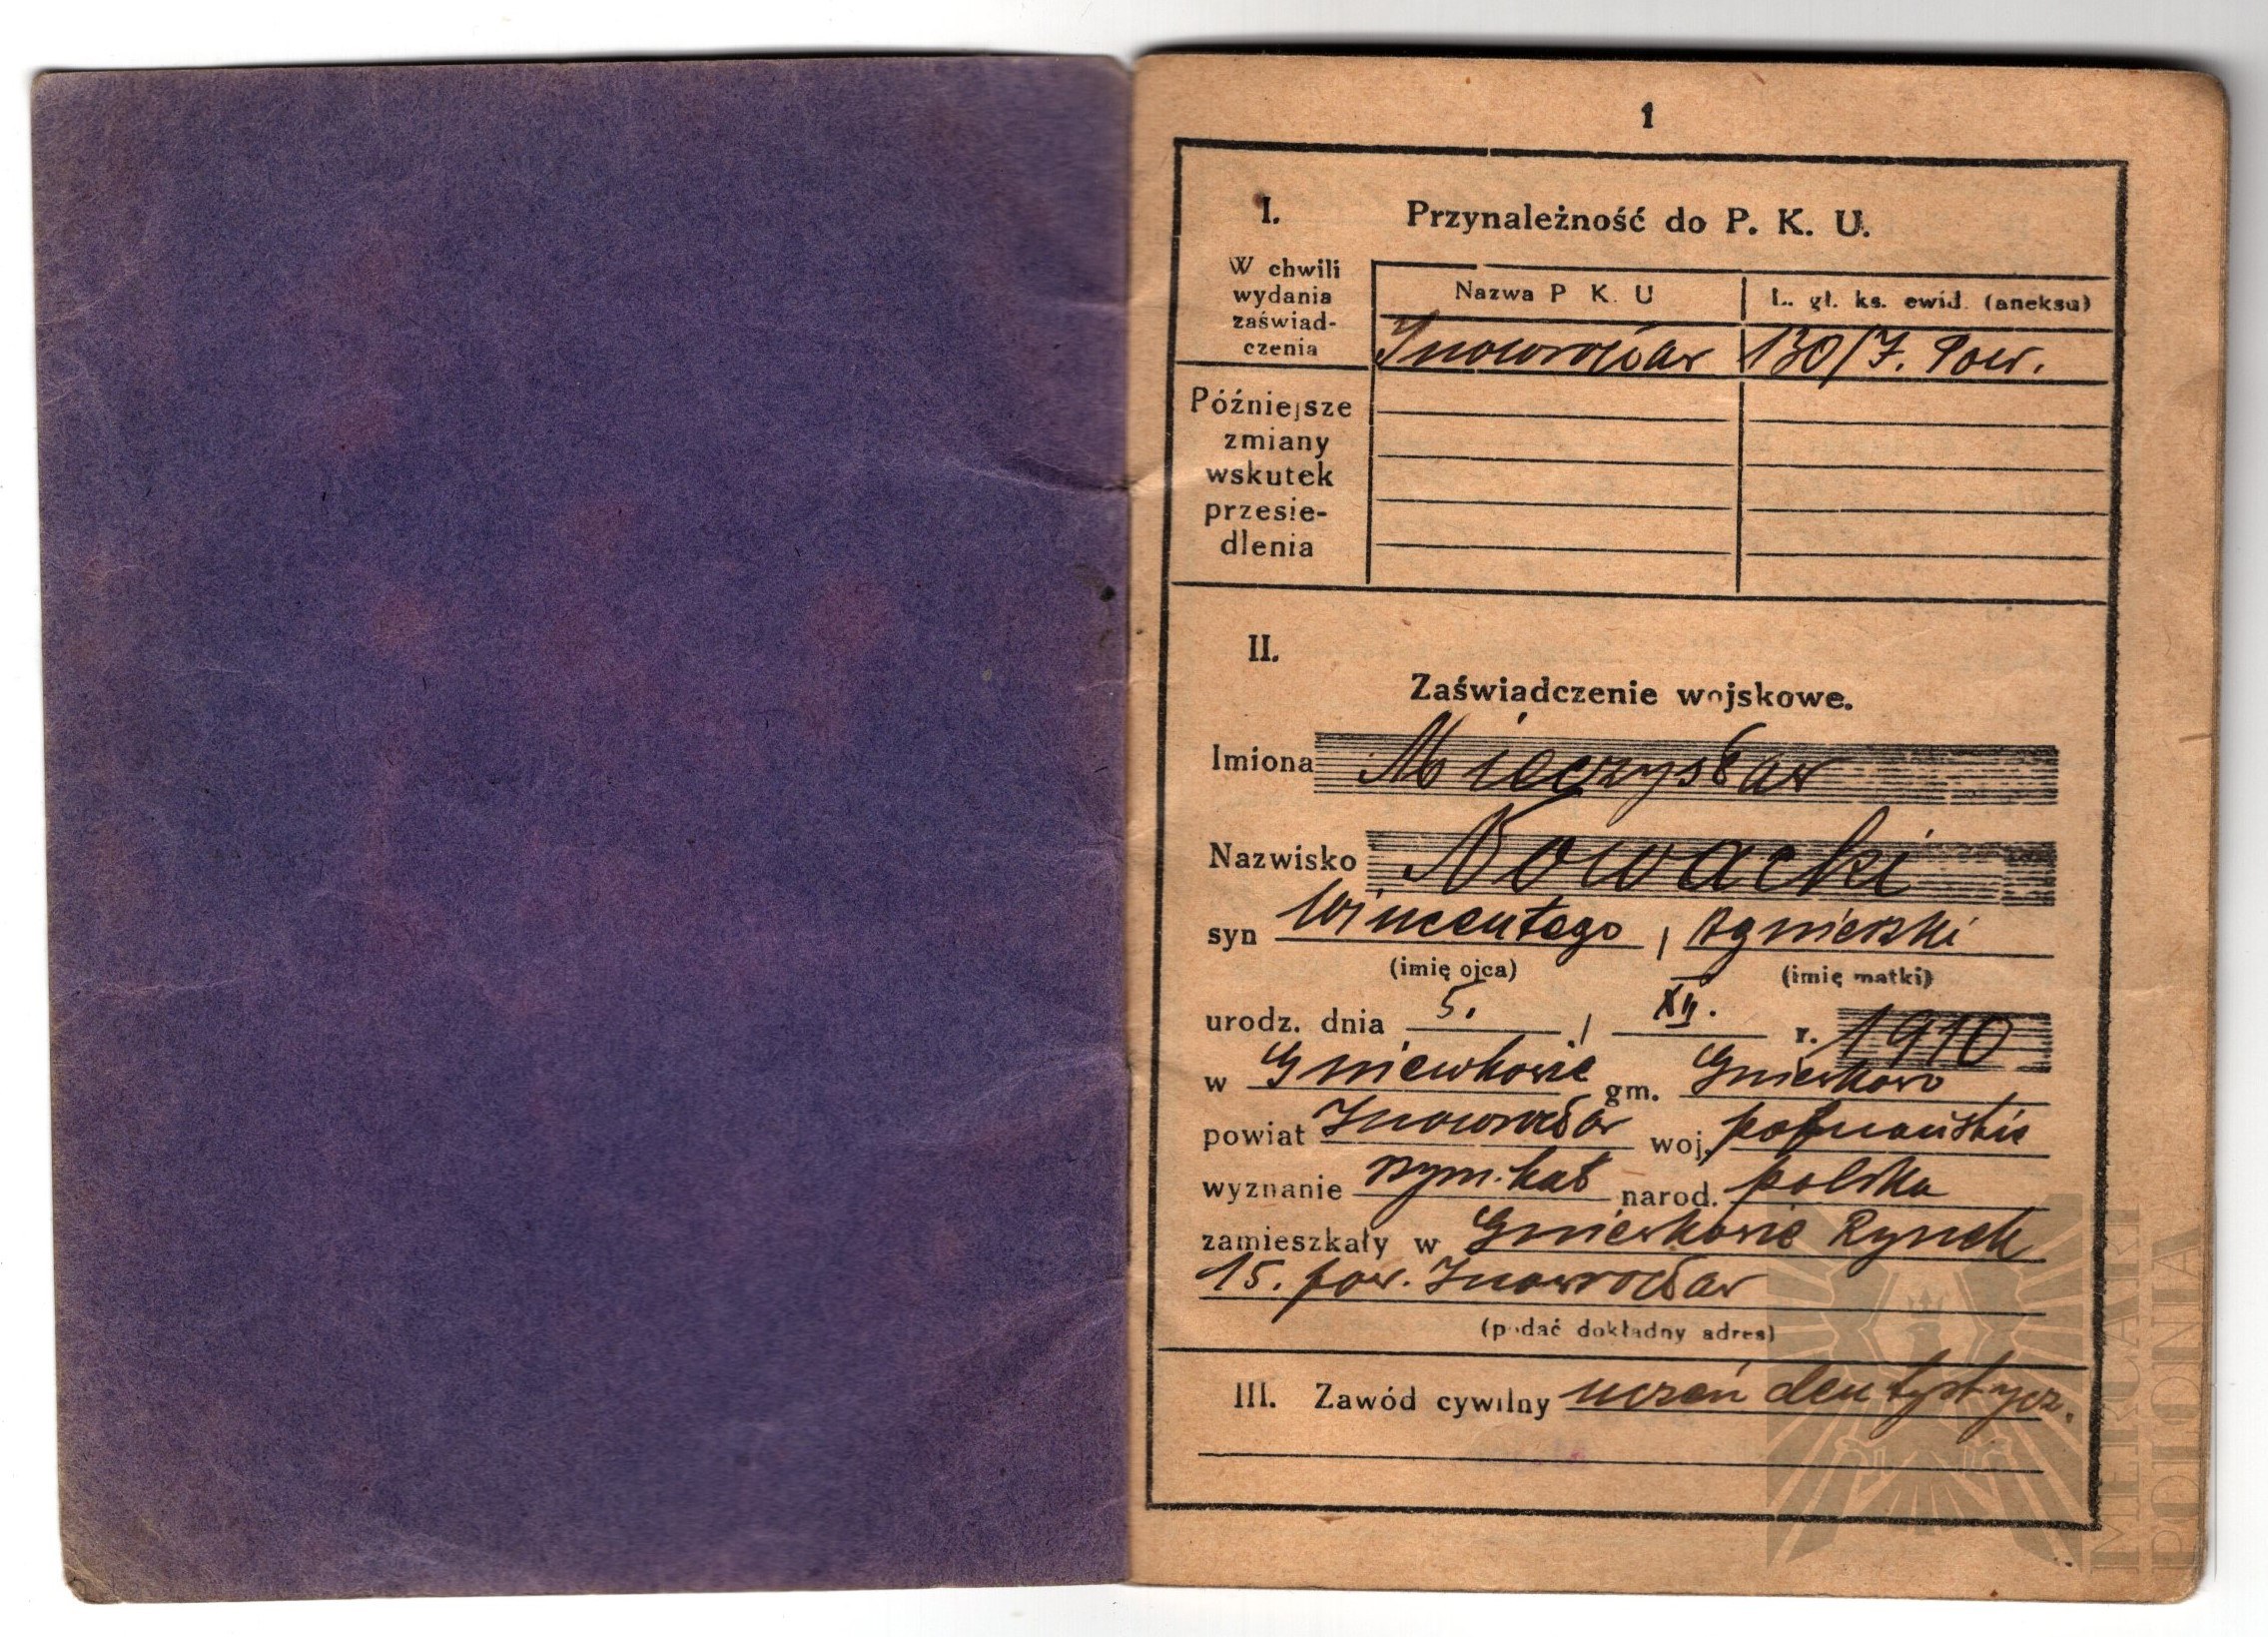 1
I. Przynależność do P. K. U.
W chwili
wydania
zaświad-
czenia
Nazwa P K. U
L. gł. ks. ewid. (aneksu)
Inowrocław
130/7. Pow.
Późniejsze
zmiany
wskutek
przesie-
dlenia
II.
Zaświadczenie wojskowe.
Imiona Mieczysław
Nazwisko Nowacki
syn Wincentego i Agnieszki
(imię ojca) (imię matki)
urodz. dnia 5. / XII. r. 1910
w Gniewkowie gm. Gniewkowo
powiat Inowrocław woj. poznańskie
wyznanie rzym. kat narod. polska
zamieszkały w Gniewkowie Rynek
15. pow. Inowrocław
(podać dokładny adres)
III. Zawód cywilny uczeń dentystycz.
MERCARI
POLONIA